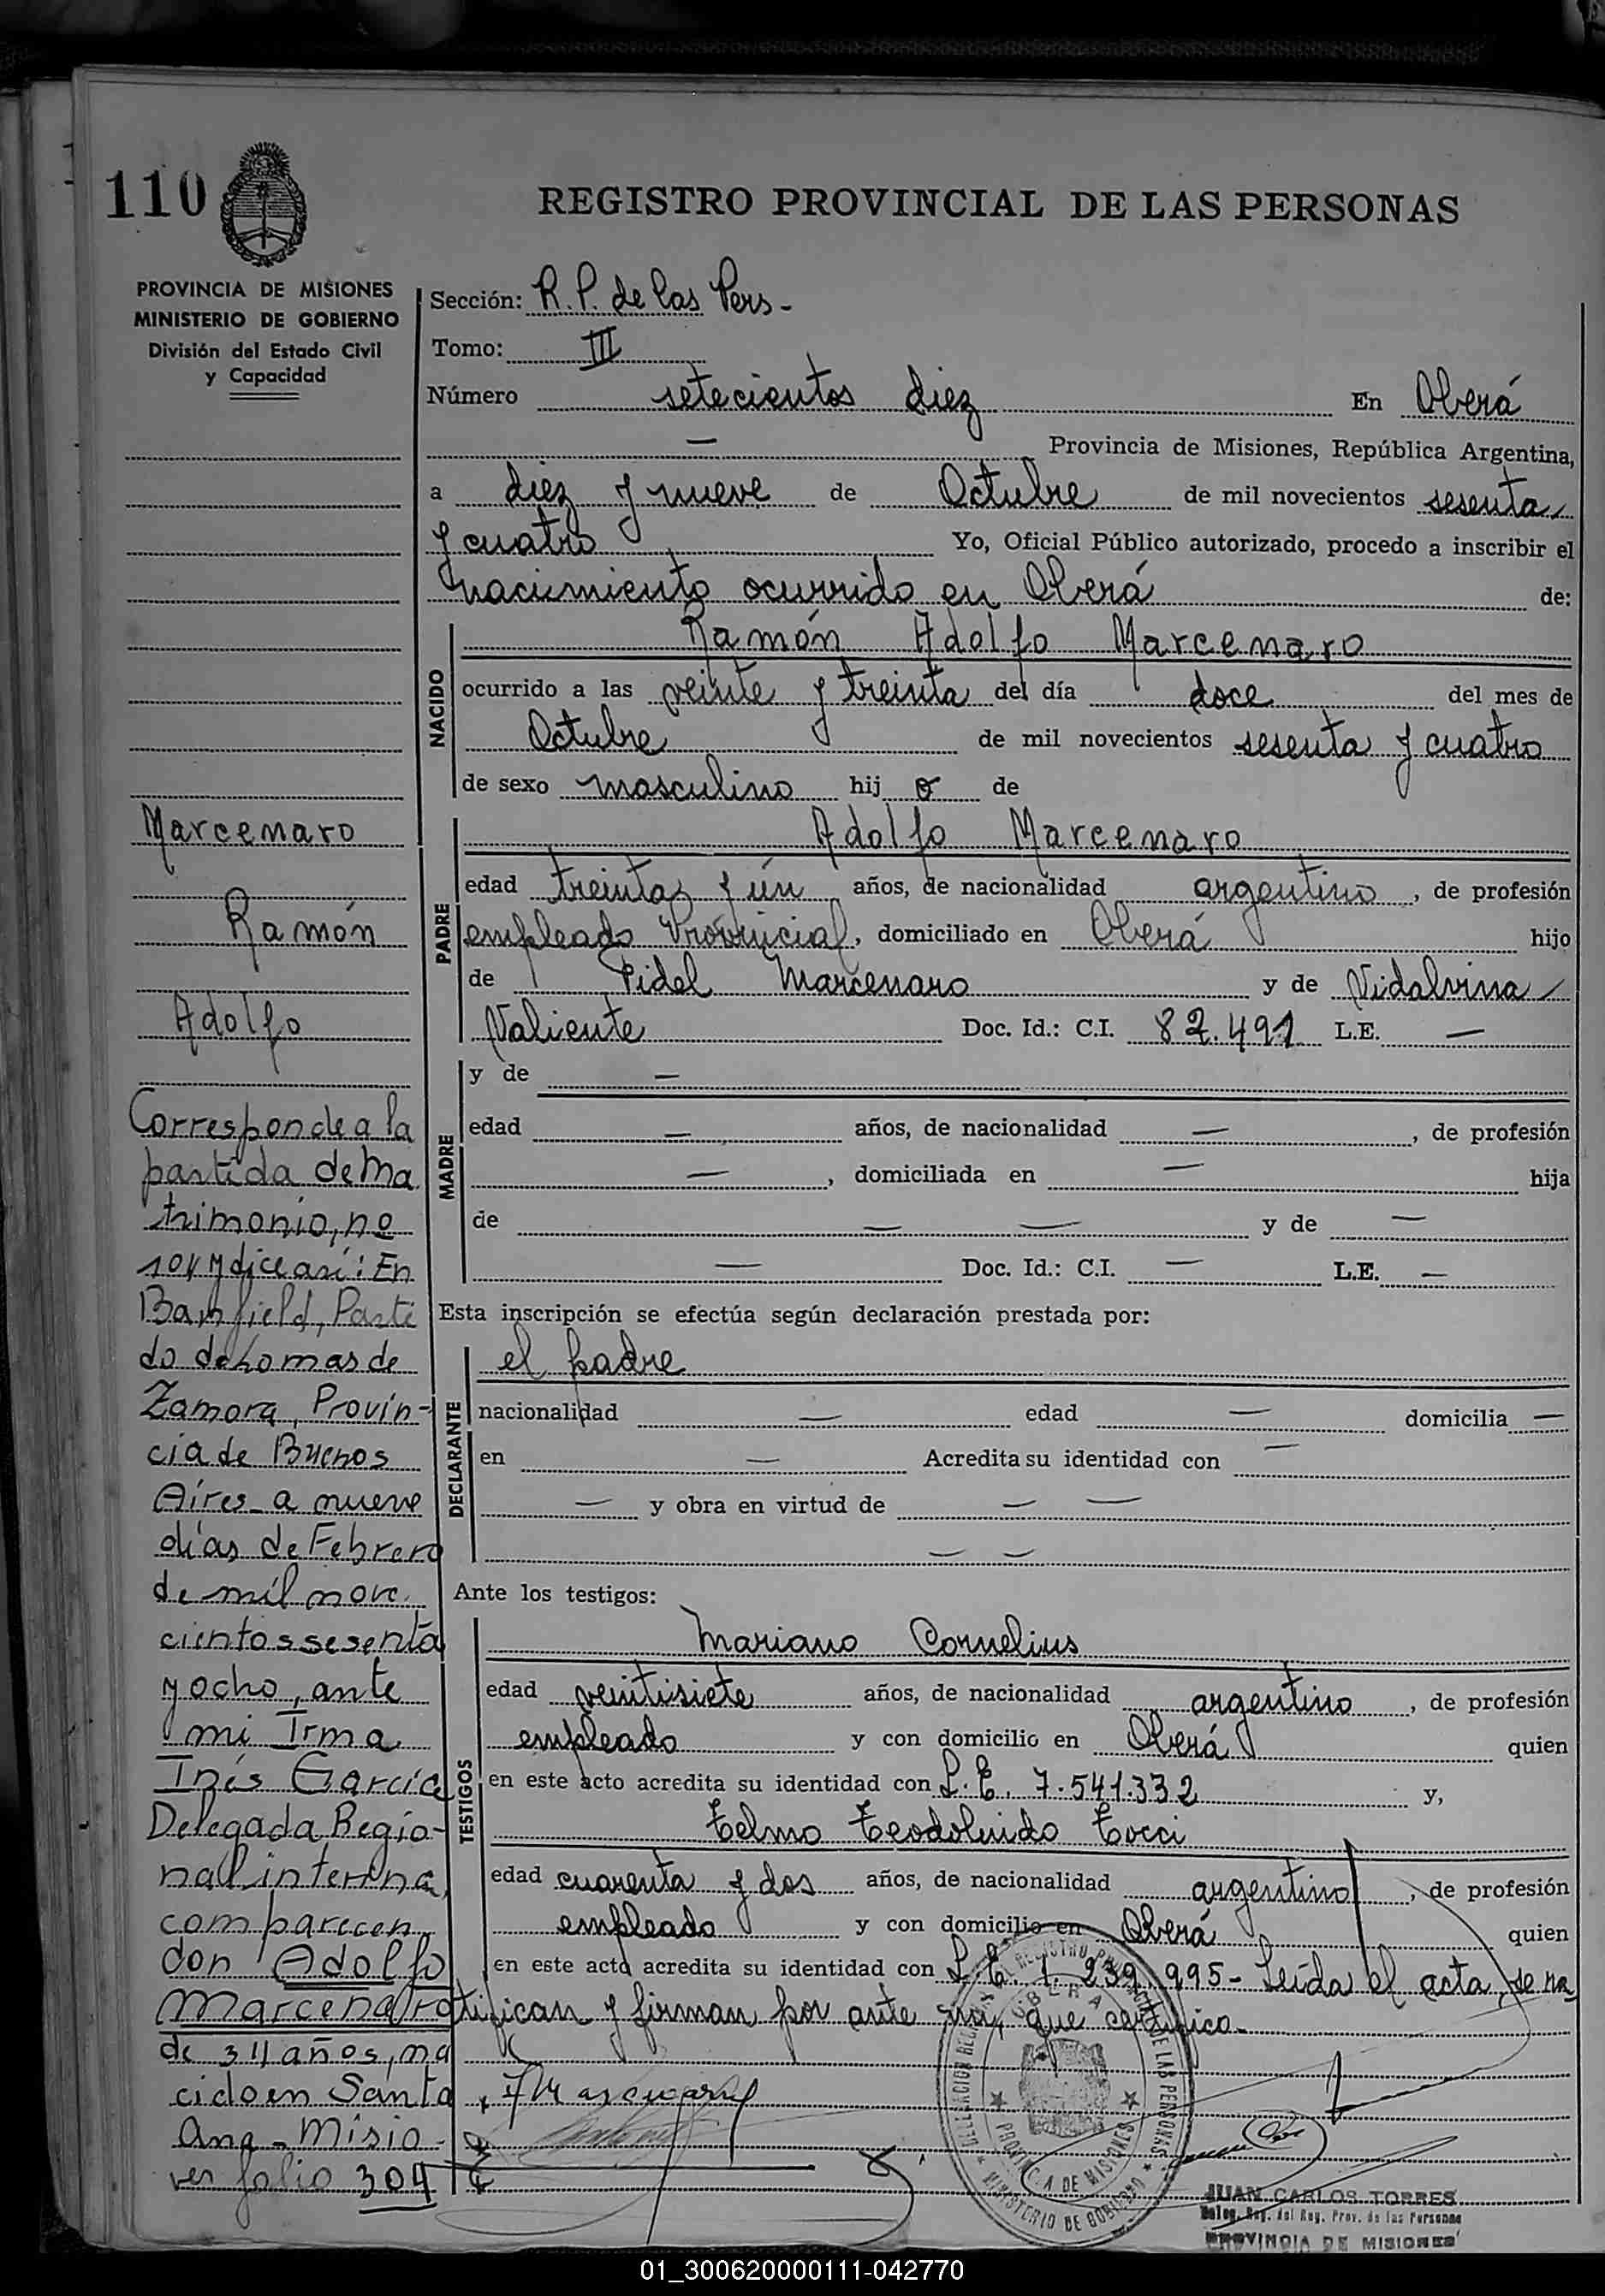 110
REGISTRO PROVINCIAL DE LAS PERSONAS
PROVINCIA DE MISIONES
MINISTERIO DE GOBIERNO
División del Estado Civil
y Capacidad
Sección: R. P. de las Pers -
Tomo: III
Número setecientos diez En Oberá
— Provincia de Misiones, República Argentina,
a diez y nueve de Octubre de mil novecientos sesenta
y cuatro Yo, Oficial Público autorizado, procedo a inscribir el
nacimiento ocurrido en Oberá de:
NACIDO
Ramón Adolfo Marcenaro
ocurrido a las veinte y treinta del día doce del mes de
Octubre de mil novecientos sesenta y cuatro
de sexo masculino hij o de
PADRE
Adolfo Marcenaro
edad treinta y un años, de nacionalidad argentino, de profesión
empleado Provincial, domiciliado en Oberá hijo
de Fidel Marcenaro y de Vidalvina
Valiente Doc. Id.: C.I. 82.491 L.E. —
MADRE
y de —
edad — años, de nacionalidad —, de profesión
—, domiciliada en — hija
de — — y de —
— Doc. Id.: C.I. — L.E. —
Esta inscripción se efectúa según declaración prestada por:
DECLARANTE
el padre
nacionalidad — edad — domicilia —
en — Acredita su identidad con —
— y obra en virtud de — —
— —
Ante los testigos:
TESTIGOS
Mariano Cornelius
edad veintisiete años, de nacionalidad argentino, de profesión
empleado y con domicilio en Oberá quien
en este acto acredita su identidad con L. E. 7.541.332 y,
Telmo Teodolindo Tocci
edad cuarenta y dos años, de nacionalidad argentino, de profesión
empleado y con domicilio en Oberá quien
en este acto acredita su identidad con L. E. 1.239.995 - Leída el acta, se ra
tifican y firman por ante mí, que certifico -
Marcenaro
Ramón
Adolfo
Corresponde a la
partida de ma
trimonio, no
104 y dice así: En
Banfield, Parti
do de Lomas de
Zamora, Provin-
cia de Buenos
Aires a nueve
días de Febrero
de mil nove
cientos sesenta
y ocho, ante
mi Irma
Inés García
Delegada Regio-
nal interina,
comparecen
don Adolfo
Marcenaro
de 34 años, na
cido en Santa
Ana - Misio -
ver folio 304
DELEGACION REGISTRO PROVINCIAL DE LAS PERSONAS
OBERA
PROVINCIA DE MISIONES
MINISTERIO DE GOBIERNO
JUAN CARLOS TORRES
Deleg. Reg. del Reg. Prov. de las Personas
PROVINCIA DE MISIONES
01_300620000111-042770